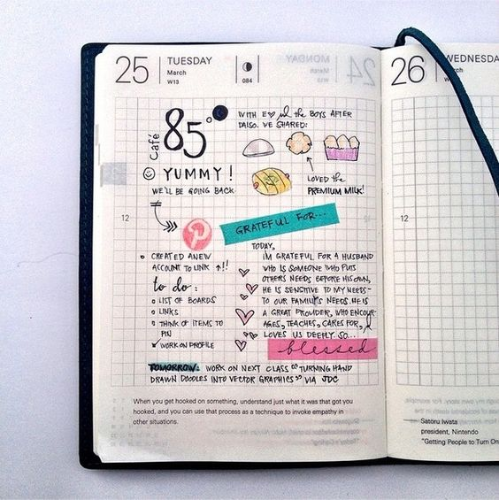 25 TUESDAY
March
W13
084
MONDAY
24
March
26 WEDNESDA
March
Café 85°
WITH E & the BOYS AFTER
DAISO. WE SHARED:
YUMMY!
WE'LL BE GOING BACK
LOVED the
PREMIUM MILK!
12
12
GRATEFUL FOR...
CREATED A NEW
ACCOUNT TO LINK ↑!!
to do:
LIST OF BOARDS
LINKS
THINK OF ITEMS TO
PIN
WORK ON PROFILE
TODAY,
I'M GRATEFUL FOR A HUSBAND
WHO IS SOMEONE WHO PUTS
OTHERS NEEDS BEFORE HIS OWN,
HE IS SENSITIVE TO MY NEEDS-
TO OUR FAMILY'S NEEDS. HE IS
A GREAT PROVIDER, WHO ENCOUR-
AGES, TEACHES, CARES FOR, &
LOVES US DEEPLY. SO...
blessed
TOMORROW: WORK ON NEXT CLASS "TURNING HAND
DRAWN DOODLES INTO VECTOR GRAPHICS" VIA JDC
When you get hooked on something, understand just what it was that got you
hooked, and you can use that process as a technique to invoke empathy in
other situations.
Satoru Iwata
president, Nintendo
"Getting People to Turn On